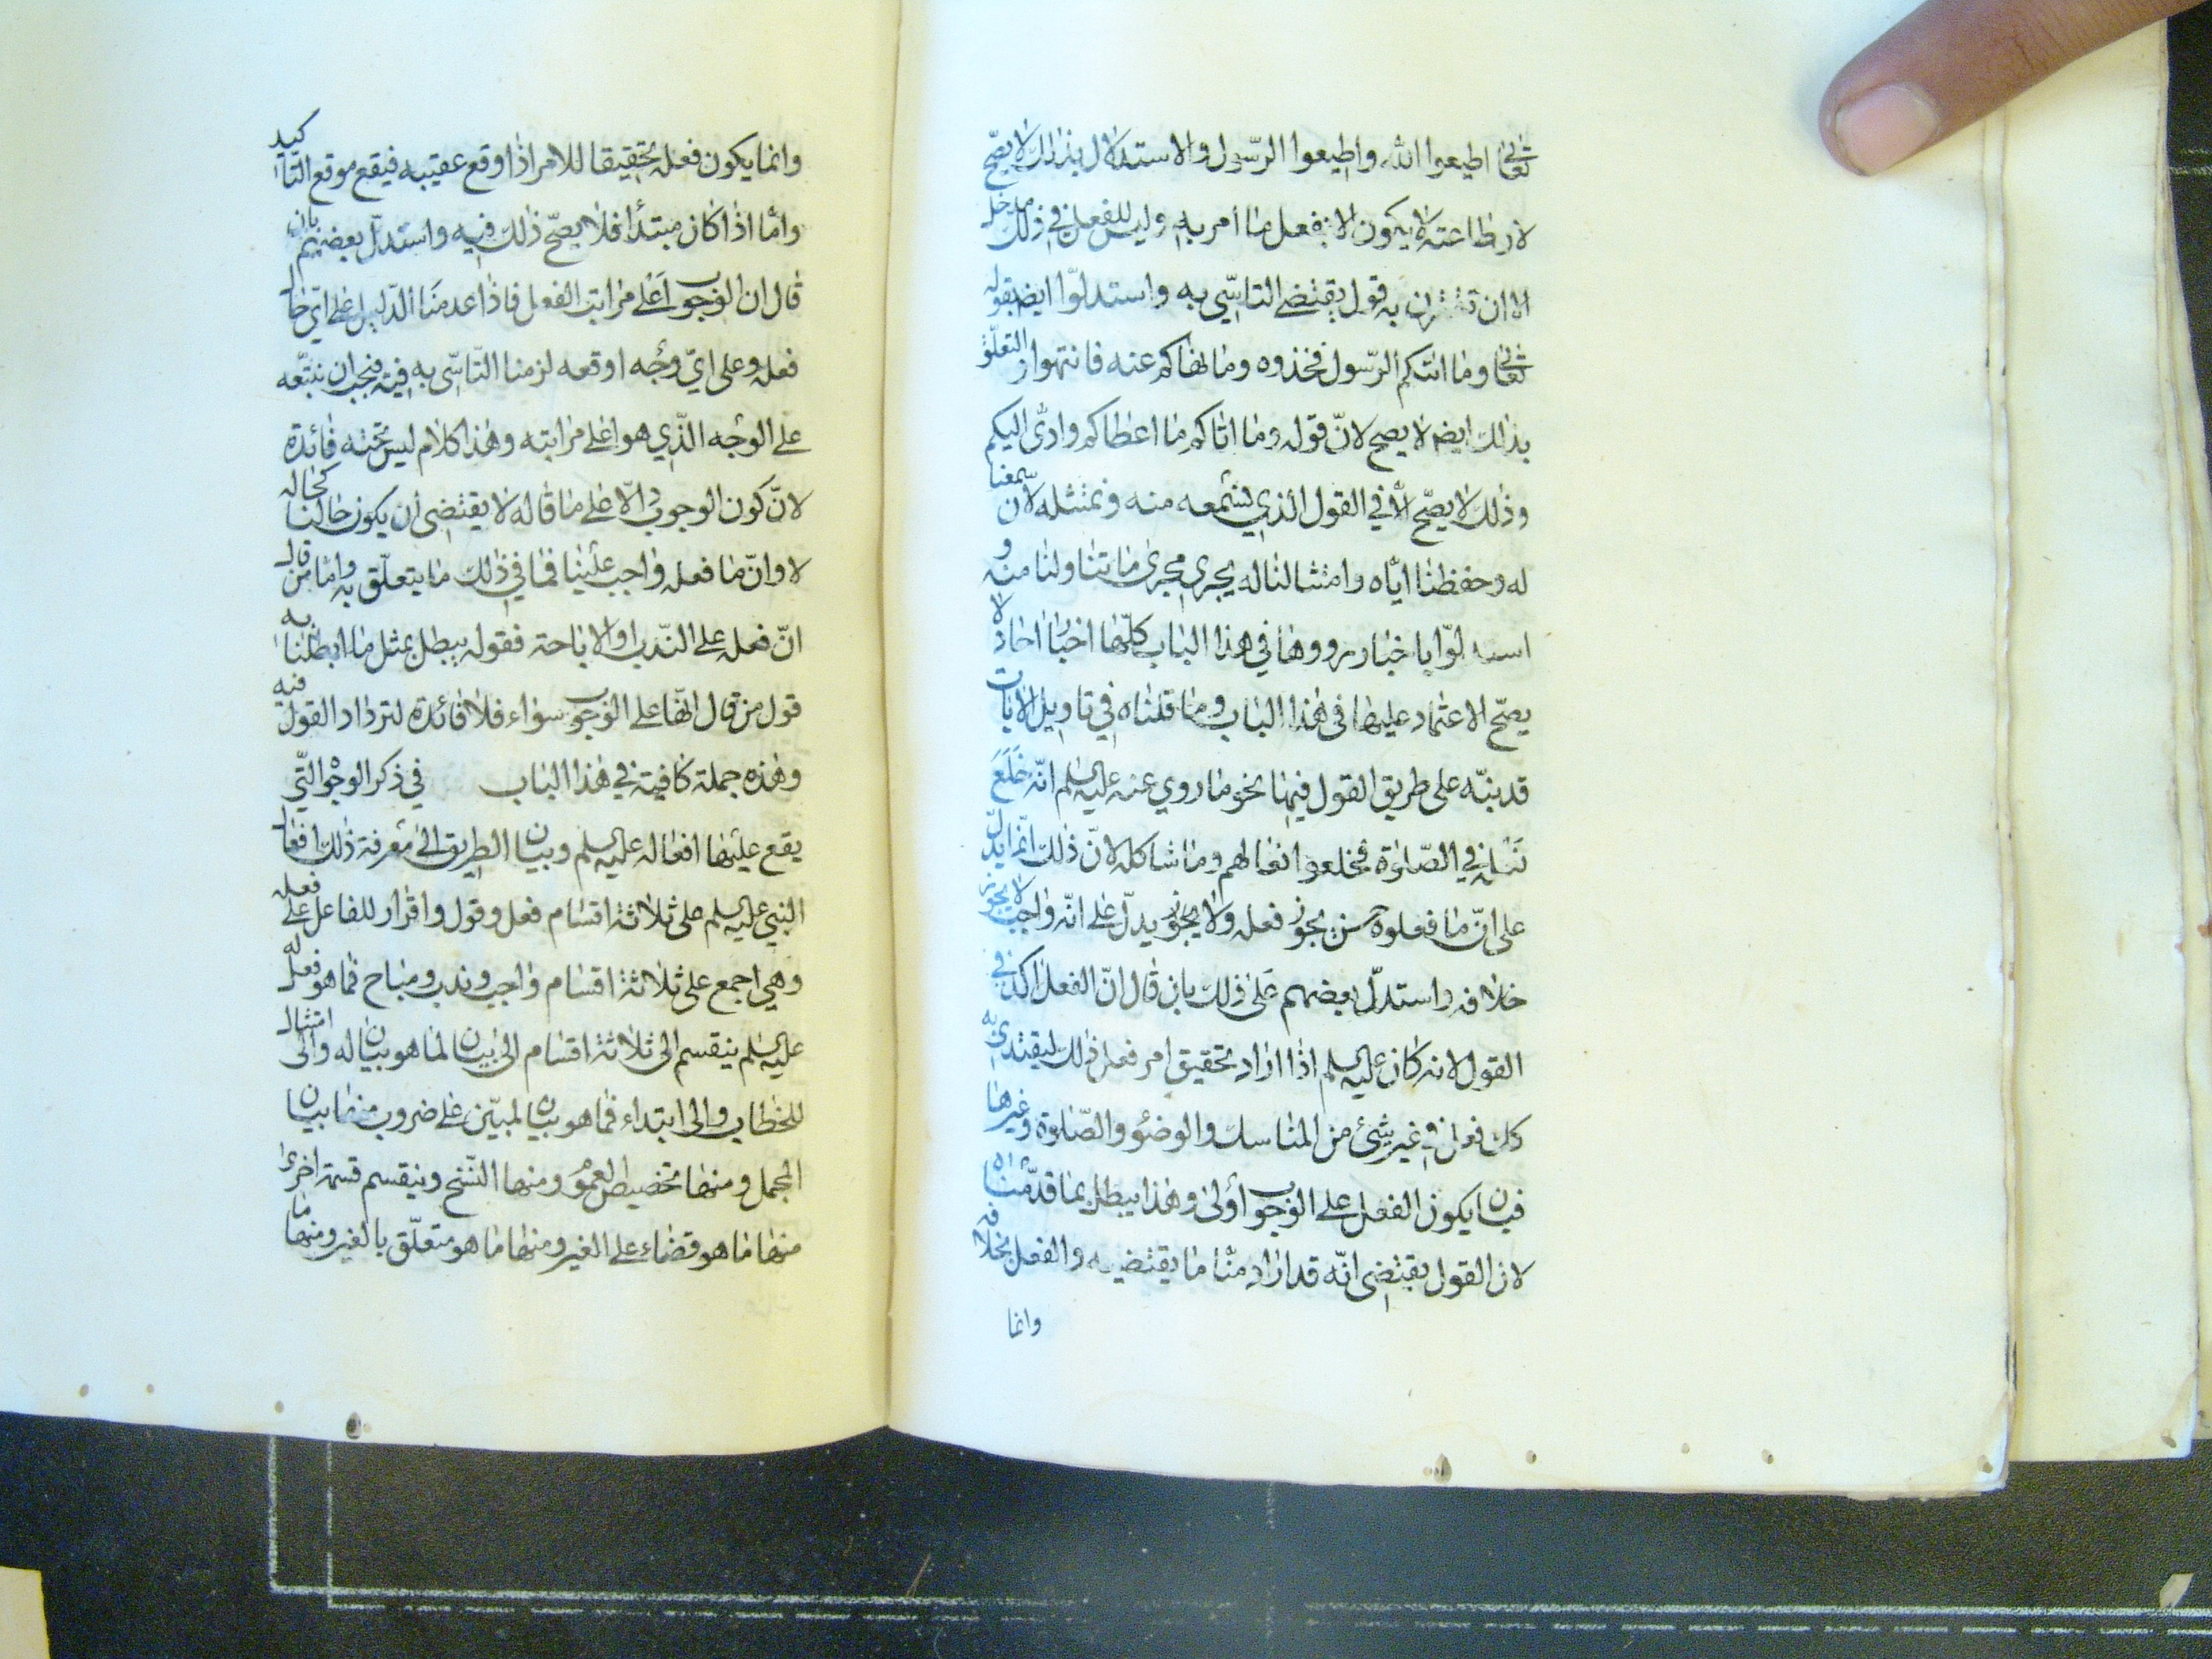 تعالى اطيعوا الله واطيعوا الرّسول والاستدلال بذلك لا يصحّ
لان طاعته لا يكون الا بفعل ما أمر به وليس للفعل في ذلك مدخل
الا ان تقترن به قول يقتضي التاسّي به واستدلّوا ايضا بقوله
تعالى وما اتيكم الرّسول فخذوه وما نهاكم عنه فانتهوا والتعلّق
بذلك ايضا لا يصح لانّ قوله وما اتاكم ما اعطاكم وادّى اليكم
وذلك لا يصحّ الّا في القول الذي نسمعه منه ونمتثله لانّ سمعنا
له وحفظنا ايّاه وامتثالنا له يجري مجرى ما تناولنا منه و
استدلّوا باخبار رووها في هذا الباب كلّها اخبار احاد لا
يصحّ الاعتماد عليها في هذا الباب وما قلناه في تاويل الايات
قد بنبّه على طريق القول فيها نحو ما روي عنه عليه السلم انّه خَلَعَ
نَعْله في الصّلوة فخلعوا نعالهم وما شاكله لانّ ذلك انّما يدلّ
على انّ ما فعلوه حسن يجوز فعله ولا يجوز يدلّ على انّه واجب لا يجوز
خلافه واستدلّ بعضهم على ذلك بان قال انّ الفعل اكد في
القول لانه كان عليه السلم اذا اراد تحقيق امر فعل ذلك ليقتدى به
كذلك فعل في غير شيئ من المناسك والوضوء والصّلوة وغيرها
فبان يكون الفعل على الوجوب أولى وهذا يبطل بما قدّمناه
لان القول يقتضي انّه قد اراد منّا ما يقتضيه والفعل بخلافه
وانما
وانما يكون فعله تحقيقا للامر اذا وقع عقيبه فيقع موقع التّاكيد
وامّا اذا كان مبتدأ فلا يصحّ ذلك فيه واستدلّ بعضهم بان
قال ان الوجوب أعلى مراتب الفعل فاذا عدمنا الدّليل على ايّ حال
فعله وعلى ايّ وجْه اوقعه لزمنا التّاسّى به فيه فيجب ان نتّبعه
على الوجْه الذّي هو اعلى مراتبه وهذا كلام ليس تحته فائدة
لانّ كون الوجوب دالّا على ما قاله لا يقتضى أن يكون حالنا كحاله
لا وانّ ما فعله واجب علينا فما في ذلك ما يتعلّق به وامّا من قال
انّ فعله على النّدب او الاباحة فقوله يبطل بمثل ما ابطلنا به
قول من قال انّها على الوجوب سواء فلا فائدة لترداد القول فيه
وهذه جملة كافية في هذا الباب في ذكر الوجوه التّي
يقع عليها افعاله عليه السلم وبيان الطريق الى معرفة ذلك افعال
النبي عليه السلم على ثلاثة اقسام فعل وقول واقرار للفاعل على فعله
وهي اجمع على ثلاثة اقسام واجب وندب ومباح فما هو فعل له
عليه السلم ينقسم الى ثلاثة اقسام الى بيان لما هو بيان له والى امتثال
للخطاب والى ابتداء فما هو بيان لمبيّن على ضروب منها بيان
المجمل ومنها تخصيص العموم ومنها النّسخ وينقسم قسمة اخرى
منها ما هو قضاء على الغير ومنها ما هو متعلّق بالغير ومنها ما